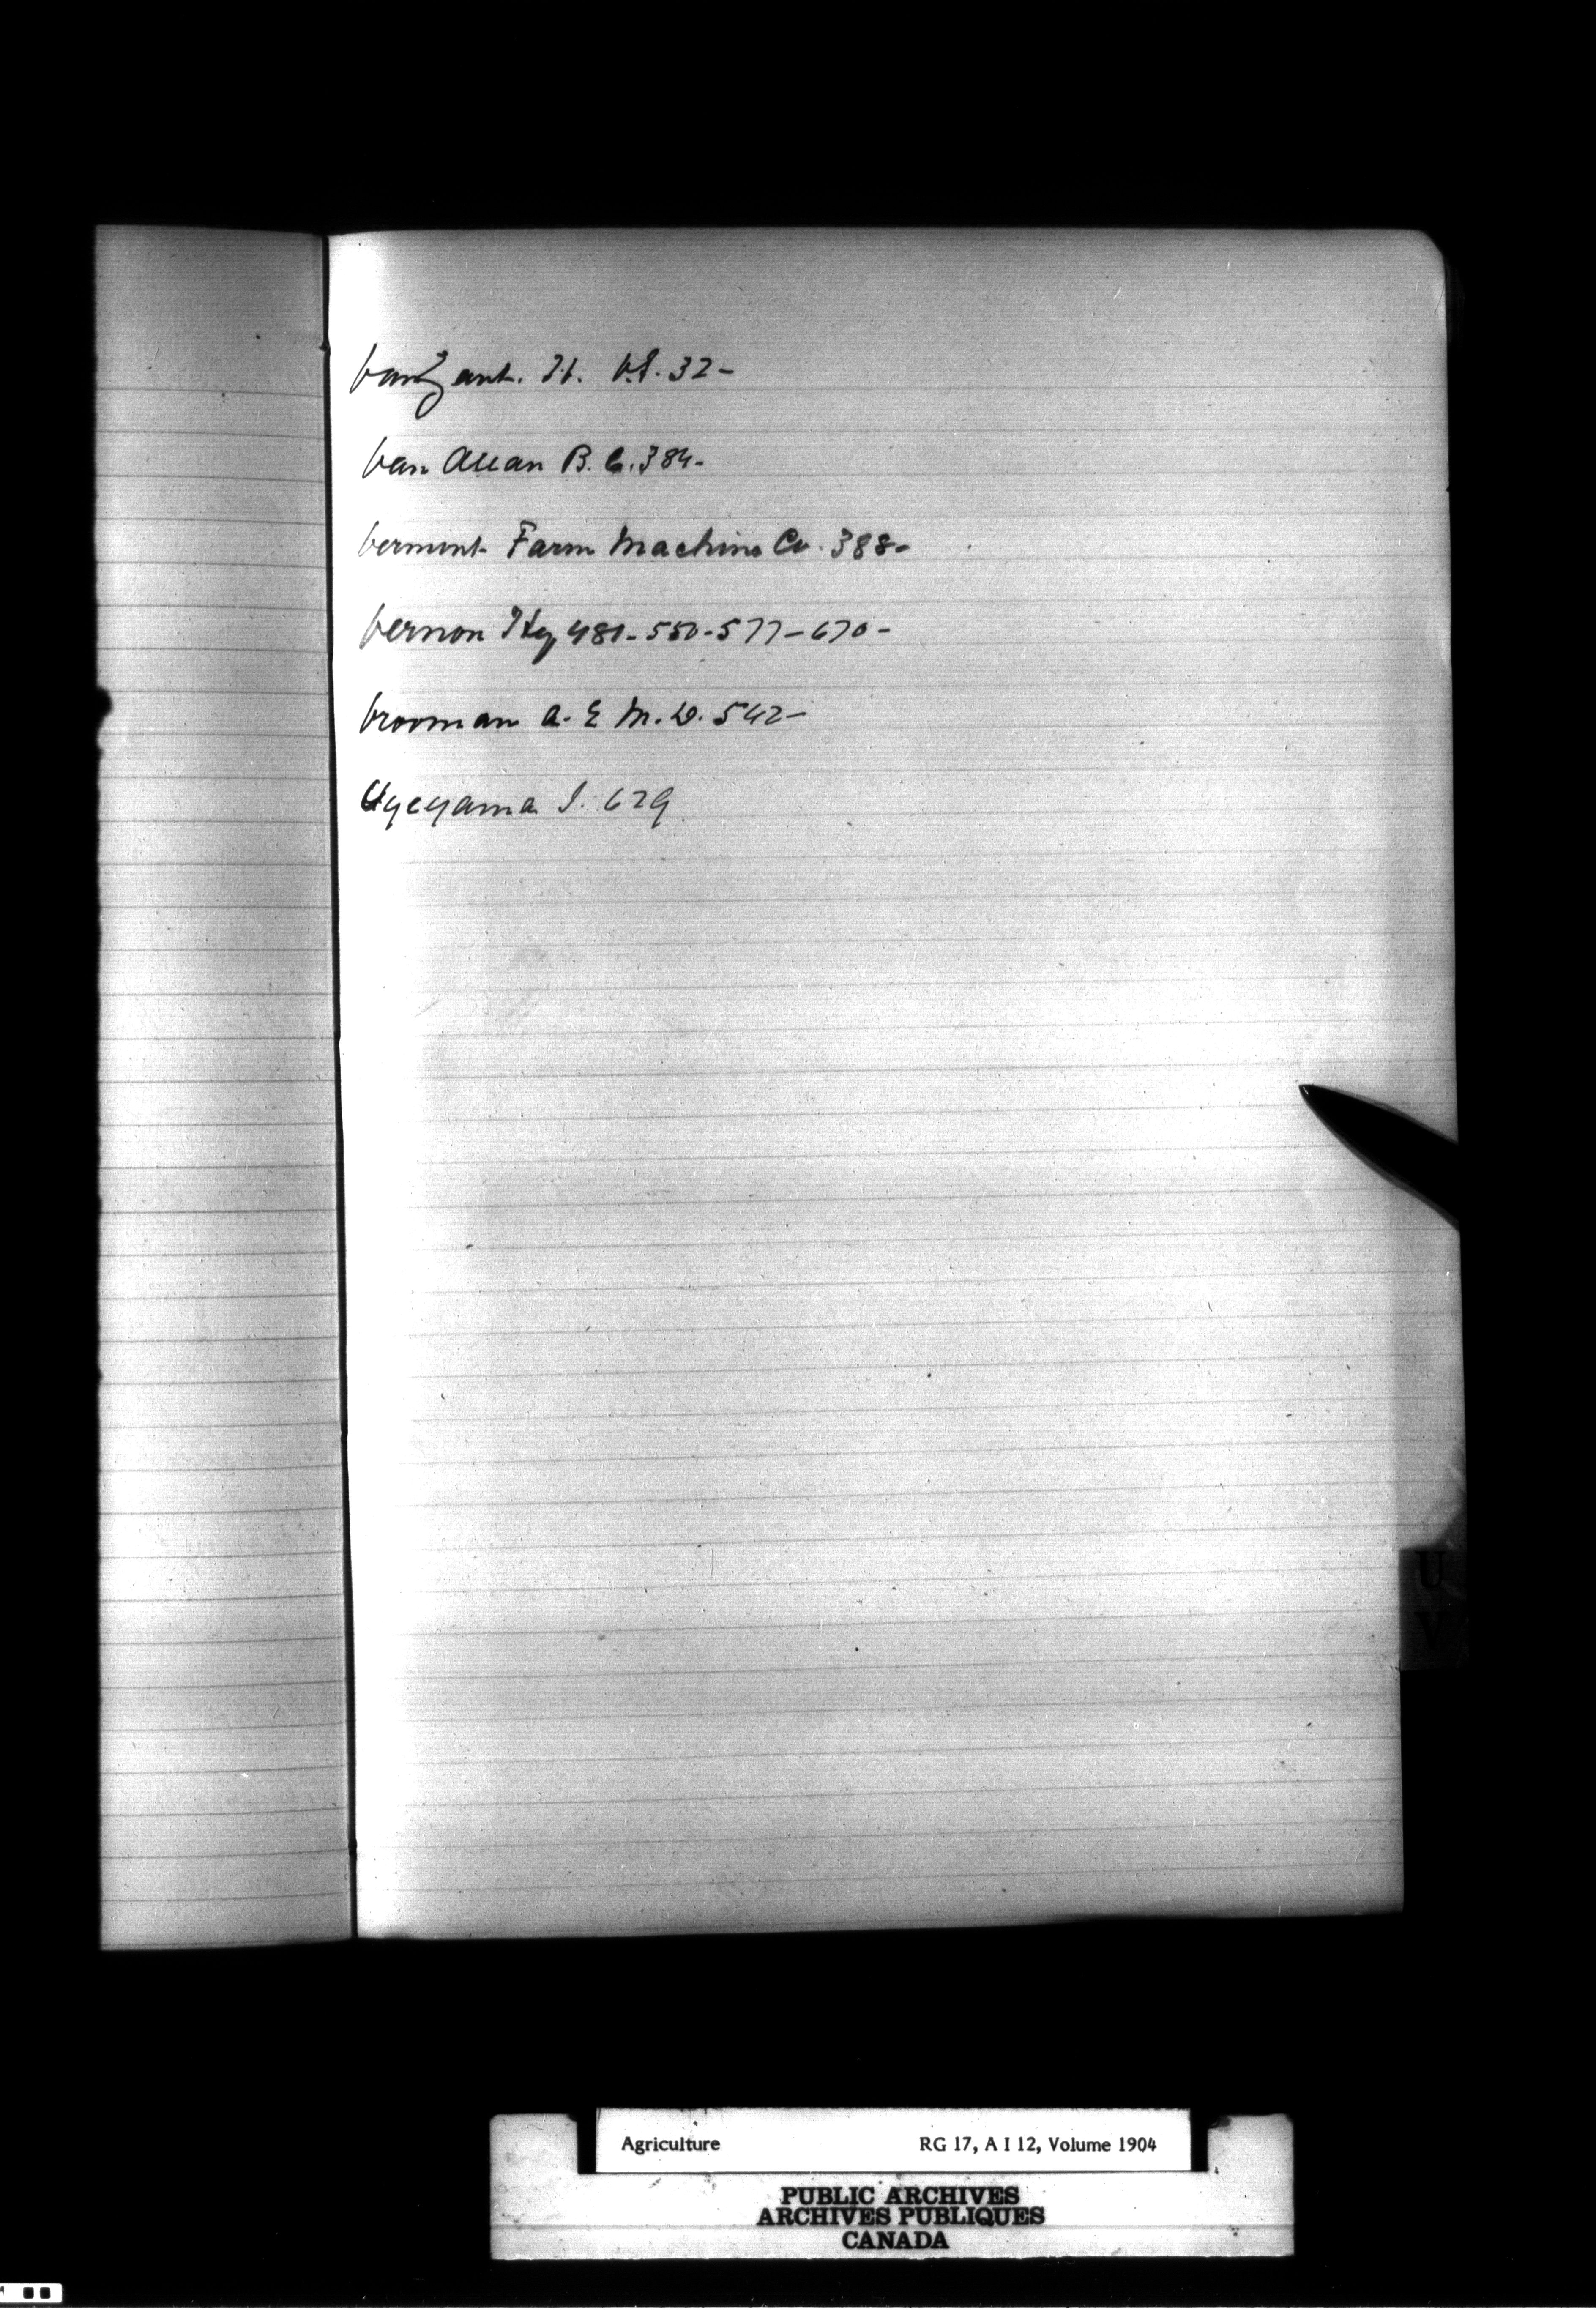 VanZant. H. V.S. 32-
Van Allan B. C. 384-
Vermont Farm Machine Co. 388-
Vernon Hy 481-550-577-670-
Vrooman A. E M. D. 542-
Uyeyama I. 629
U
V
Agriculture RG 17, A I 12, Volume 1904
PUBLIC ARCHIVES
ARCHIVES PUBLIQUES
CANADA